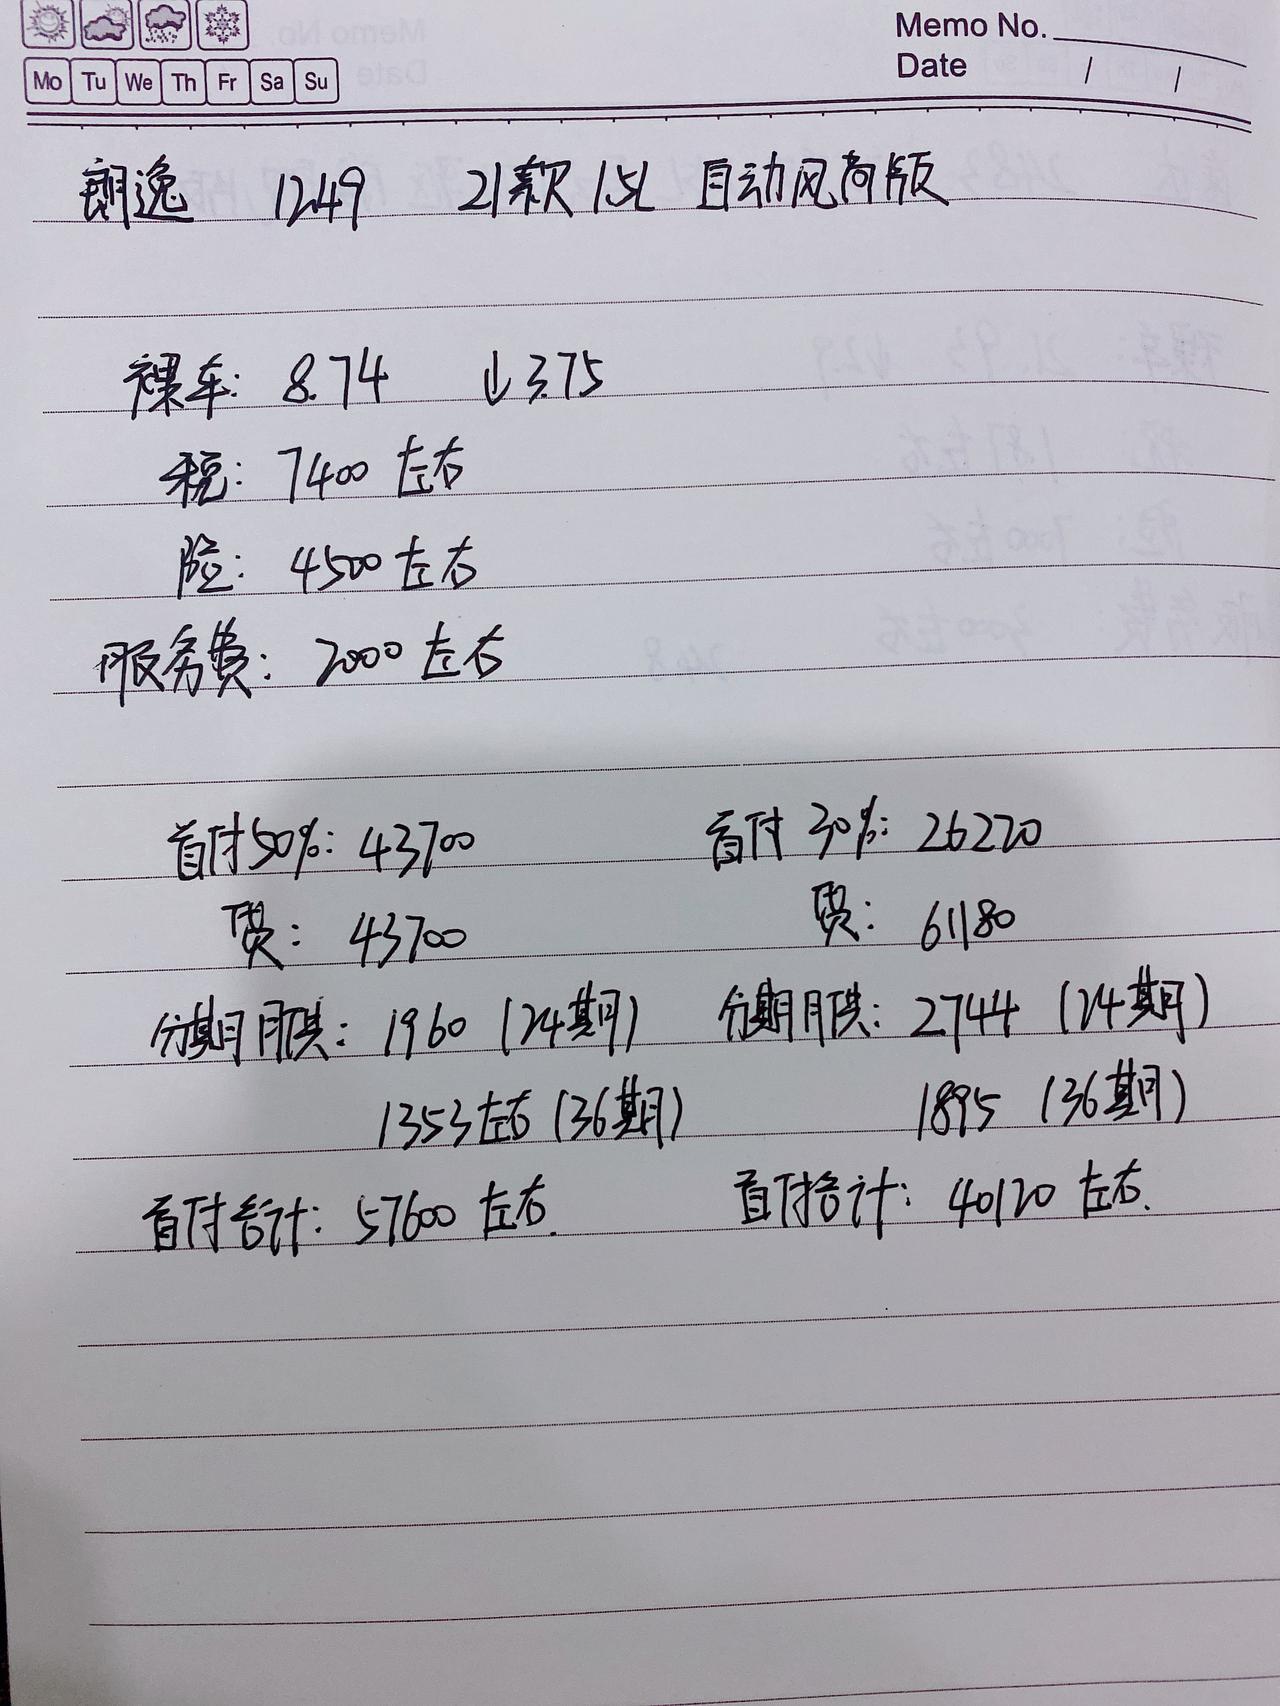 Memo No.
Mo Tu We Th Fr Sa Su
Date / /
朗逸 1249 21款 1.5L 自动风尚版
裸车: 8.74 ↓3.75
税: 7400 左右
险: 4500 左右
服务费: 2000 左右
首付50%: 43700 首付 30%: 26220
贷: 43700 贷: 61180
分期月供: 1960 (24期) 分期月供: 2744 (24期)
1353左右 (36期) 1895 (36期)
首付合计: 57600 左右. 首付合计: 40120 左右.